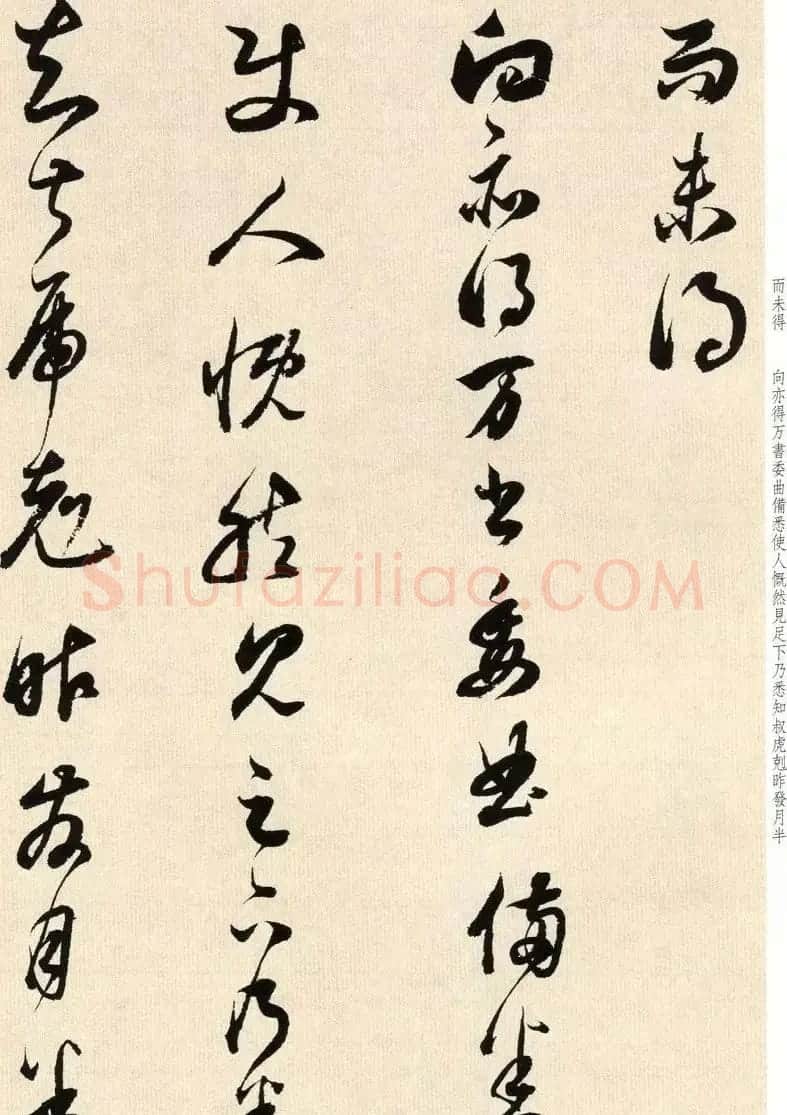 而未得
向亦得万書委曲備悉
使人慨然見足下乃悉
知叔虎剋昨發月半
而未得　向亦得万書委曲備悉使人慨然見足下乃悉知叔虎剋昨發月半
Shufaziliao.COM